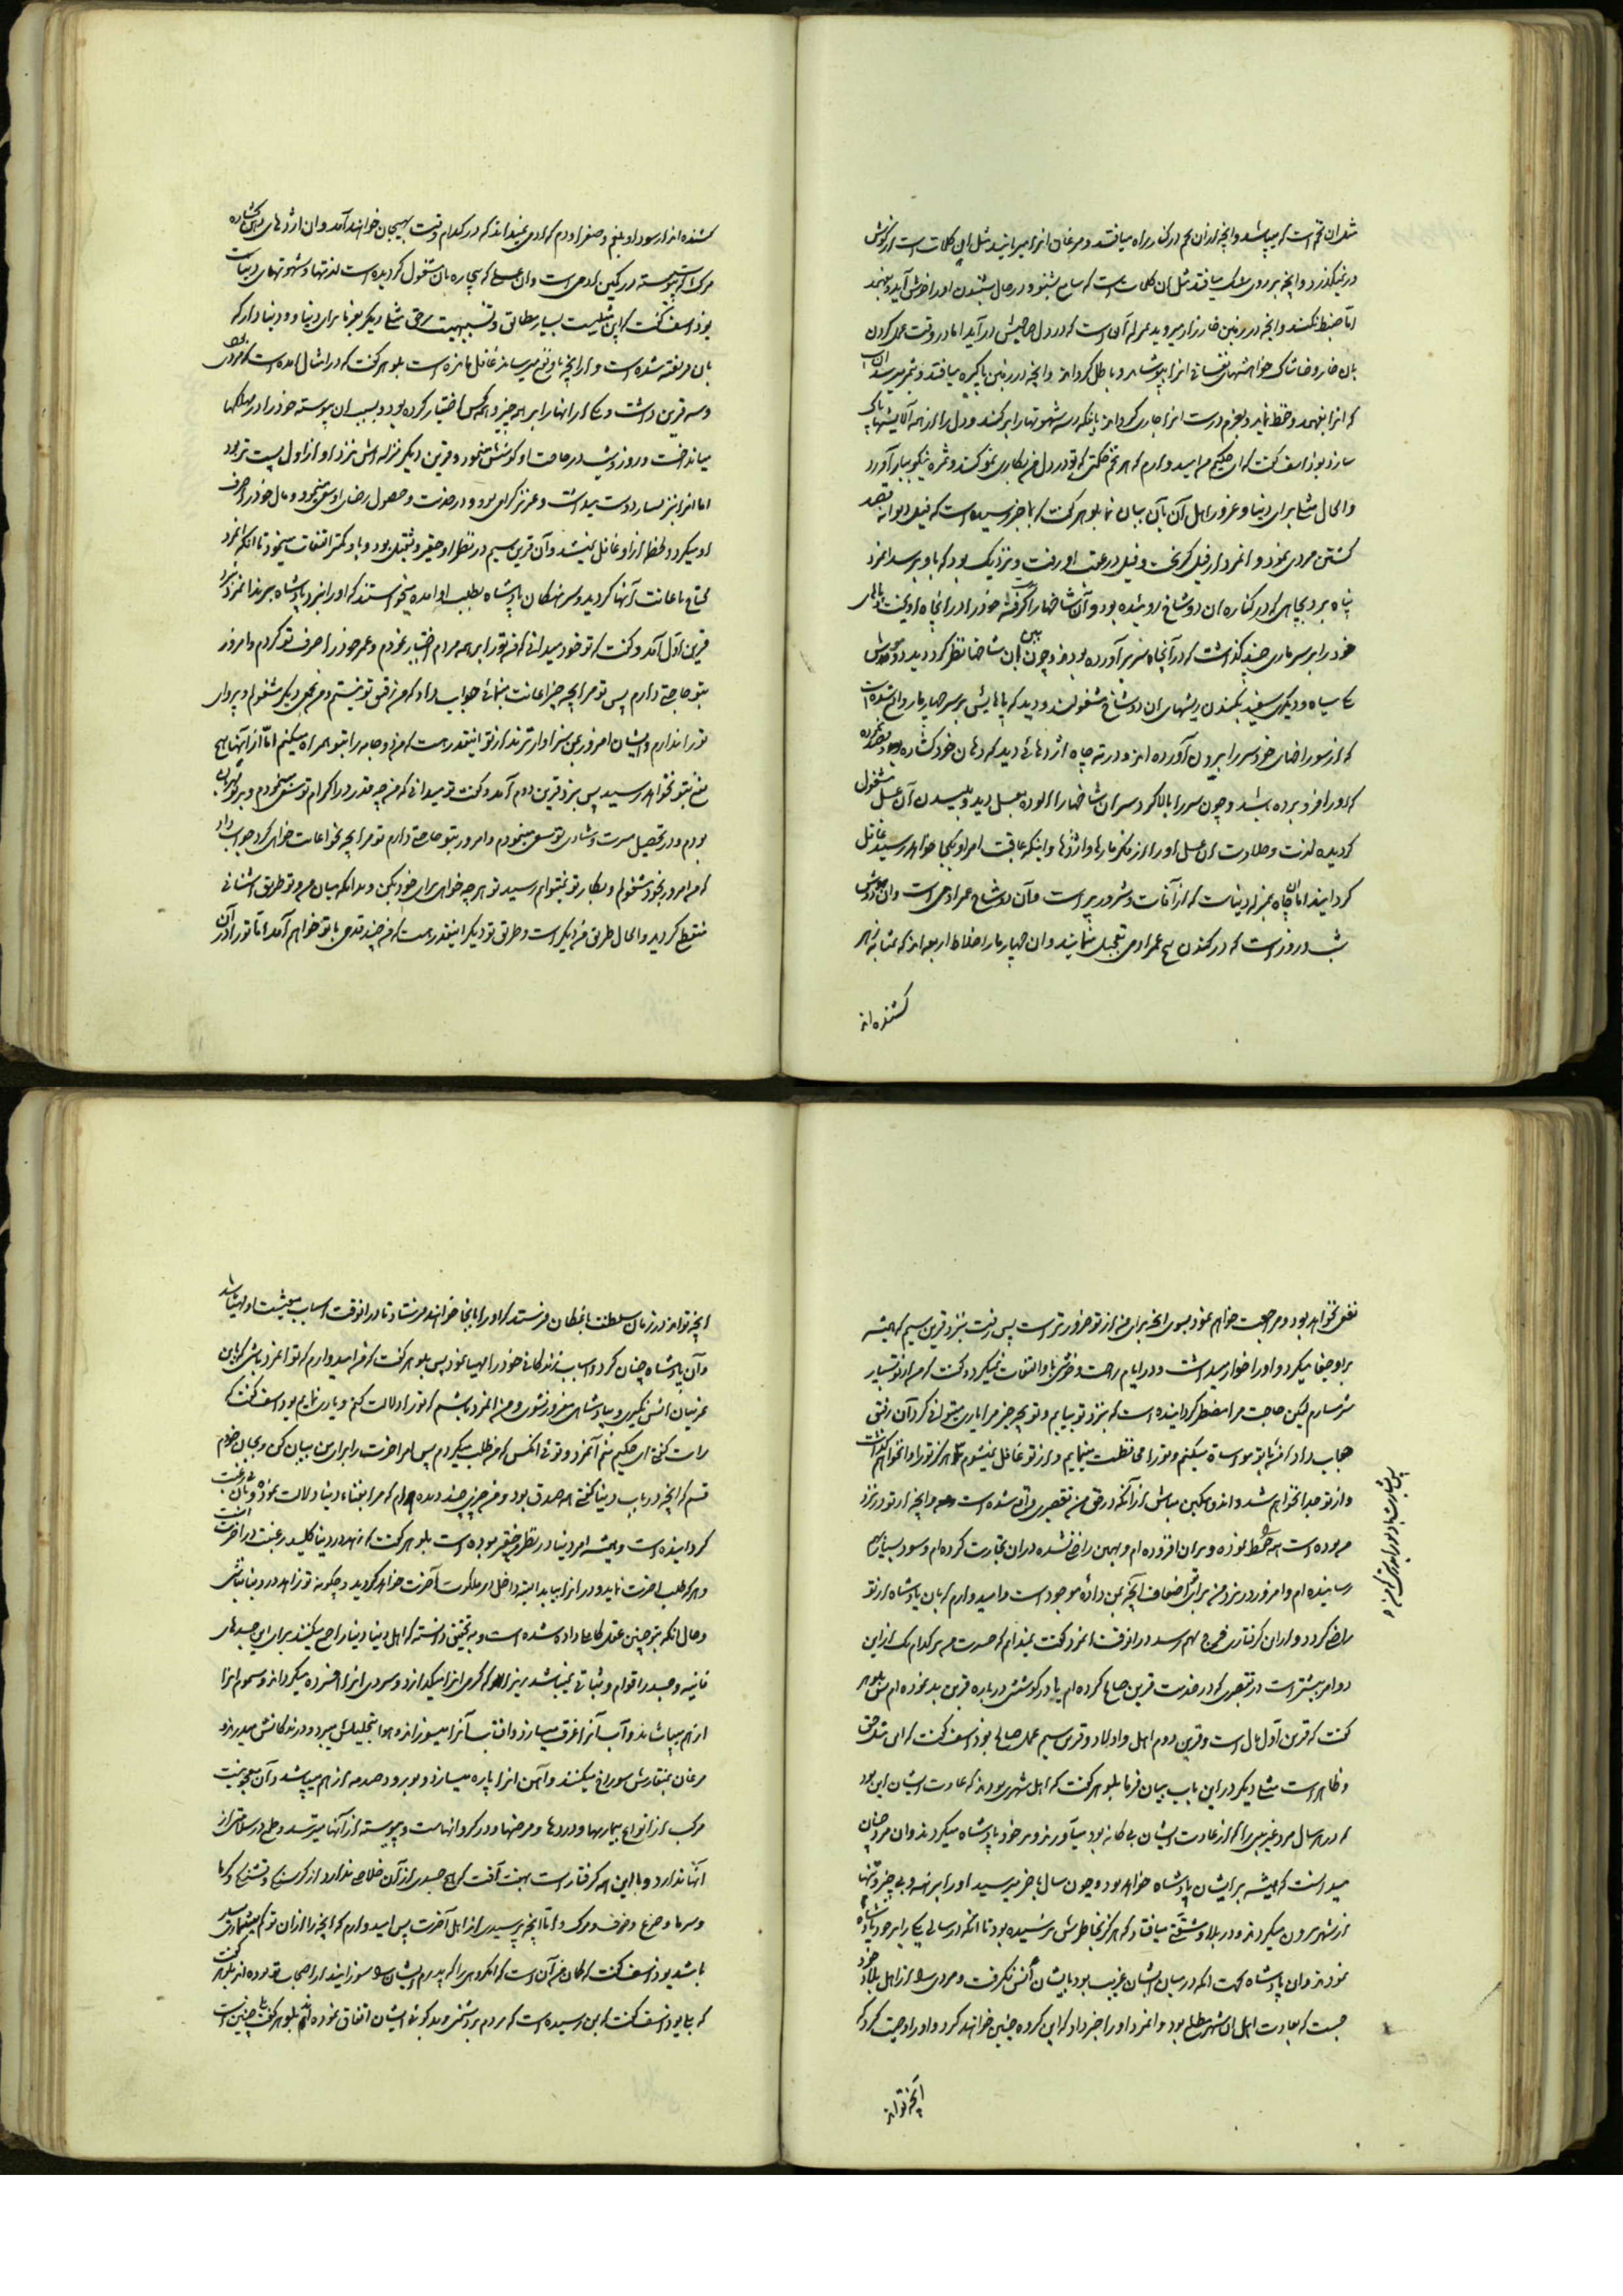 مثل ان تخم است که میپاشد و انچه از ان تخم در کنار راه میافتد و مرغان انرا میربایند مثل این کلمات است که از گوش
در میگذرد و انچه بر روی سنک میافتد مثل ان کلمات است که سامع بشنود و در حال شنیدن او را خوش آید و بفهمد
امّا ضبط نکند و انچه در زمین خارزار میروید بمنزله آن است که در دل صاحبش در آید اما در وقت عمل کردن
بان خار و خاشاک خواهشهای نفسانی انرا بپوشاند و باطل گرداند و انچه در زمین پاکیزه میافتد و بثمر میرسد ان است
که انرا بفهمد و حفظ نماید و بعزم درست انرا جاری گرداند بانیکه ریشه شهوتها را بر کند و دل را از همه آلایشها پاک
سازد یوذاسف گفت که ای حکیم من امید دارم که هر تخم حکمتی که تو در دل من بکاری نمو کند و ثمره نیکو ببار آورد
و الحال مثلی برای دنیا و غرور اهل آن بآن بیان نما بلوهر گفت که بما خبر رسیده است که فیل دیوانه قصد
کشتن مردی نمود و انمرد از فیل گریخت و فیل در عقب او رفت و نزدیک بود که باو برسد انمرد
پناه برد بچاهی که در کناره ان دو شاخ روئیده بود و آن شاخها را گرفته خود را در انچاه آویخت و پاهای
خود را بر سر ماری چند گذاشت که در آنچاه سر بر آورده بودند و چون بان شاخها نظر کرد دید دو موش
یکی سیاه و دیگری سفید بکندن ریشهای ان دو شاخ مشغولند و دید که پاهایش بر سر چهار مار واقع شده است
که از سوراخهای خود سر را بیرون آورده اند و در ته چاه اژدهائی دید که دهان خود گشاده بود و قصد کرده
که او را فرو برده باشد و چون سر را بالا کرد سر ان شاخها را آلوده بعسل دید و بلیسیدن آن عسل مشغول
گردیده لذت و حلاوت ان عسل او را از فکر مارها و اژدها و اینکه عاقبت امر او بکجا خواهد رسید غافل
گردانید اما ان چاه بمنزله دنیاست که از آفات و شرور پر است و آن دو شاخ عمر ادمی است و ان دو موش
شب و روز است که در کندن بیخ عمر ادمی تعجیل مینمایند و ان چهار مار اخلاط اربعه اند که بمثابه زهر
کشنده اند
کشنده اند از سودا و بلغم و صفرا و دم که ادمی نمیداند که در کدام وقت بهیجان خواهند آمد و ان اژدهای دهان گشاده
مرک است که پیوسته در کمین ادمی است و ان عسلی که بیچاره بان مشغول گردیده است لذتها و شهوتهای دنیاست
یوذاسف گفت که این مثلیست بسیار مطابق و تشبیهیست بحق مثلی دیگر بفرما برای دنیا و دنیا دار که
بان فریفته شده است و از انچه باو نفع میرساند غافل مانده است بلوهر گفت که در امثال امده است که مردی بود
و سه قرین داشت و یکی از انها را بر همه چیز و همه کس اختیار کرده بود و بسبب ان پیوسته خود را در مهلکها
میانداخت و روز و شب در حاجت او کوشش مینمود و قرین دیگر منزله اش نزد او از اول پست تر بود
اما انرا نیز بسیار دوست میداشت و عزیز گرامی بود و در خدمت و حصول رضای او سعی مینمود و مال خود را صرف
او میکرد و لحظه از او غافل نمیشد و آن قرین سیم در نظر او حقیر و ثقیل بود و باو کمتر التفات مینمود تا انکه انمرد
محتاج باعانت آنها گردید و سرهنگان پادشاه بطلب او امده میخواستند که او را بنزد پادشاه ببرند انمرد نزد
قرین اول آمد و گفت که تو خود میدانی که من تو را بر همه مردم اختیار نمودم و عمر خود را صرف تو کردم و امروز
بتو حاجتی دارم پس تو مرا بچه چیز اعانت مینمائی جواب داد که من رفیق تو نیستم و من بجمعی دیگر مشغولم و پروای
تو را ندارم و ایشان امروز بمن سزاوارترند از تو اینقدر هست که من دو جامه را بتو همراه میکنم امّا از آنها هیچ
نفع بتو نخواهد رسید پس بنزد قرین دوم آمد و گفت تو میدانی که من چه قدر در اکرام تو سعی مینمودم و بر تو مهربان
بودم و در تحصیل مسرت و شادی تو سعی مینمودم و امروز بتو حاجتی دارم تو مرا بچه نحو اعانت خواهی کرد جواب داد
که من امروز بخود مشغولم و بکار تو نمیتوانم رسید تو هر چه خواهی برای خود بکن و بدانکه میان من و تو طریق اشنائی
منقطع گردید و الحال طریق من دیگر است و طریق تو دیگر اینقدر هست که من چند قدمی با تو خواهم آمد امّا تو را در آن
نفعی نخواهد بود و مراجعت خواهم نمود بسوی انچه برای من از تو ضرورتر است پس رفت بنزد قرین سیم که همیشه
بر او جفا میکرد و او را خوار میداشت و در ایام راحت و خوشی باو التفات نمیکرد و گفت که من از تو بسیار
شرمسارم لیکن حاجت مرا مضطر گردانیده است که بنزد تو بیایم و تو بچه چیز مرا یاری میتوانی کرد آن رفیق
جواب داد که من با تو مواساة میکنم و تو را محافظت مینمایم و از تو غافل نمیشوم و هرگز تو را وانخواهم گذاشت
و از تو جدا نخواهم شد و اندوهگین مباش از آنکه در حق من تقصیری واقع شده است و انچه از تو در نزد
من بوده است همه را حفظ نموده و بران افزوده ام و بهمین راضی نشده در ان تجارت کرده ام و سود بسیار بهم
رسانیده ام و امروز در نزد من برای تو اضعاف آنچه بمن داده موجود است و امیدوارم که بان پادشاه از تو
راضی گردد و از این گرفتاری فرج بهم رسد در انوقت انمرد گفت نمیدانم که حسرت من بر کدام یک از این
دو امر بیشتر است در تقصیری که در خدمت قرین صالح کرده ام یا در کوششی در باره قرین بد نموده ام پس بلوهر
گفت که قرین اوّل مال است و قرین دوم اهل و اولاد و قرین سیم عمل صالح یوذاسف گفت که این مثل حق
و ظاهر است مثلی دیگر در این باب بیان فرما بلوهر گفت که اهل شهری بودند که عادت ایشان این بود
که در هر سال مرد غریبی را که از عادت ایشان بیگانه بود میآوردند و بر خود پادشاه میکردند و ان مرد چنان
میدانست که همیشه بر ایشان پادشاه خواهد بود و چون سال باخر میرسید او را برهنه و بی چیز و تنها
از شهر بیرون میکردند و در بلا و مشقّتی میافتاد که هرگز بخاطرش نرسیده بود تا انکه در سالی یکی را بر خود پادشاه
نمودند و ان پادشاه بجهت انکه در میان ایشان غریب بود بایشان اُنس نگرفت و مردی را از اهل بلاد خود
جست که بعادت اهل ان شهر مطلع بود و انمرد او را خبر داد که این گروه چنین خواهند کرد و او را وصیت کرد که
انچه تواند
انچه تواند در زمان سلطنت بانمکان فرستد که او را بانجا خواهند فرستاد تا در انوقت اسباب معیشت او مهیا باشد
و آن پادشاه چنان کرد و اسباب زندگانی خود را مهیا نمود پس بلوهر گفت که من امیدوارم که تو انمرد باشی که باین
غریبان انس نگیری و بپادشاهی مغرور نشوی و من انمرد باشم که تو را دلالت کنم و یاری نمایم یوذاسف گفت که
راست گفتی ای حکیم منم آنمرد و توئی انکس که من طلب میکردم پس امر اخرت را برای من بیان کن و بجان خودم
قسم که انچه در باب دنیا گفتی همه صدق بود و من چیزی چند دیده ام که مرا بفناء دنیا دلالت نموده و بان بی رغبت
گردانیده است و همیشه امر دنیا در نظر من حقیر بوده است بلوهر گفت که زهد در دنیا کلید رغبت در اخرت است
و هر که طلب اخرت نماید و در انرا بیابد البته داخل در ملکوت آخرت خواهد گردید و چگونه تو زاهد در دنیا نباشی
و حال انکه بتو چنین عقل کامل داده شده است و بتحقیق دانسته که اهل دنیا دنیا را جمع میکنند برای این جسدهای
فانیه و جسد را قوام و ثباتی نمیباشد زیرا که گرمی انرا میگدازد و سردی انرا افسرده میگرداند و سموم انرا
از هم میپاشاند و آب آنرا غرق میسازد و افتاب آنرا میسوزاند و هوا بتحلیلش میبرد و درندگانش میدرند و
مرغان بمنقارش سوراخ میکنند و آهن انرا پاره میسازد و بورود صدمه از هم میپاشد و آن معجونیست
مرکب از انواع بیماریها و دردها و مرضها و در گرو انهاست و پیوسته از آنها میترسد و طمع در سلامتی از
آنها ندارد و با این همه گرفتار است بهفت آفت که هیچ جسدی از آن خلاصی ندارد از گرسنگی و تشنگی و گرما
و سرما و وجع و خوف و مرک و امّا انچه پرسیدی از اهل آخرت پس امیدوارم که انچه را از ان تو کم میشماری بسیار
باشد یوذاسف گفت که گمان من آن است که انگروهی را که پدرم ایشان را سوزانید از اصحاب تو بوده اند بلوهر گفت
که بلی یوذاسف گفت که بمن رسیده است که مردم بر دشمنی و بدگوئی ایشان اتفاق نموده اند بلوهر گفت بلی چنین است